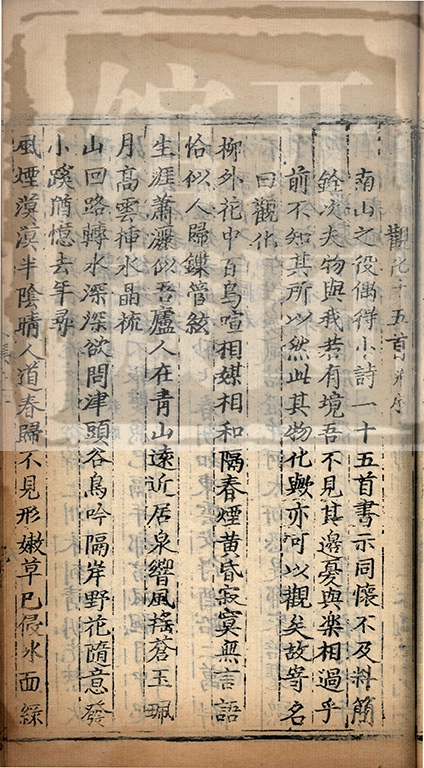 觀化十五首并序
南山之役偶得小詩一十五首書示同懷不及料簡
銓次夫物與我若有境吾不見其邊憂與樂相過乎
前不知其所以然此其物化歟亦可以觀矣故寄名
曰觀化
柳外花中百鳥喧相媒相和隔春煙黄昏寂寞無言語
恰似人歸鏁管絃
生涯蕭灑似吾廬人在青山遠近居泉響風搖蒼玉珮
月髙雲揷水晶梳
山回路轉水深深欲問津頭谷鳥吟隔岸野花隨意發
小蹊猶憶去年尋
風煙漠漠半陰晴人道春歸不見形嫩草已侵水面緑